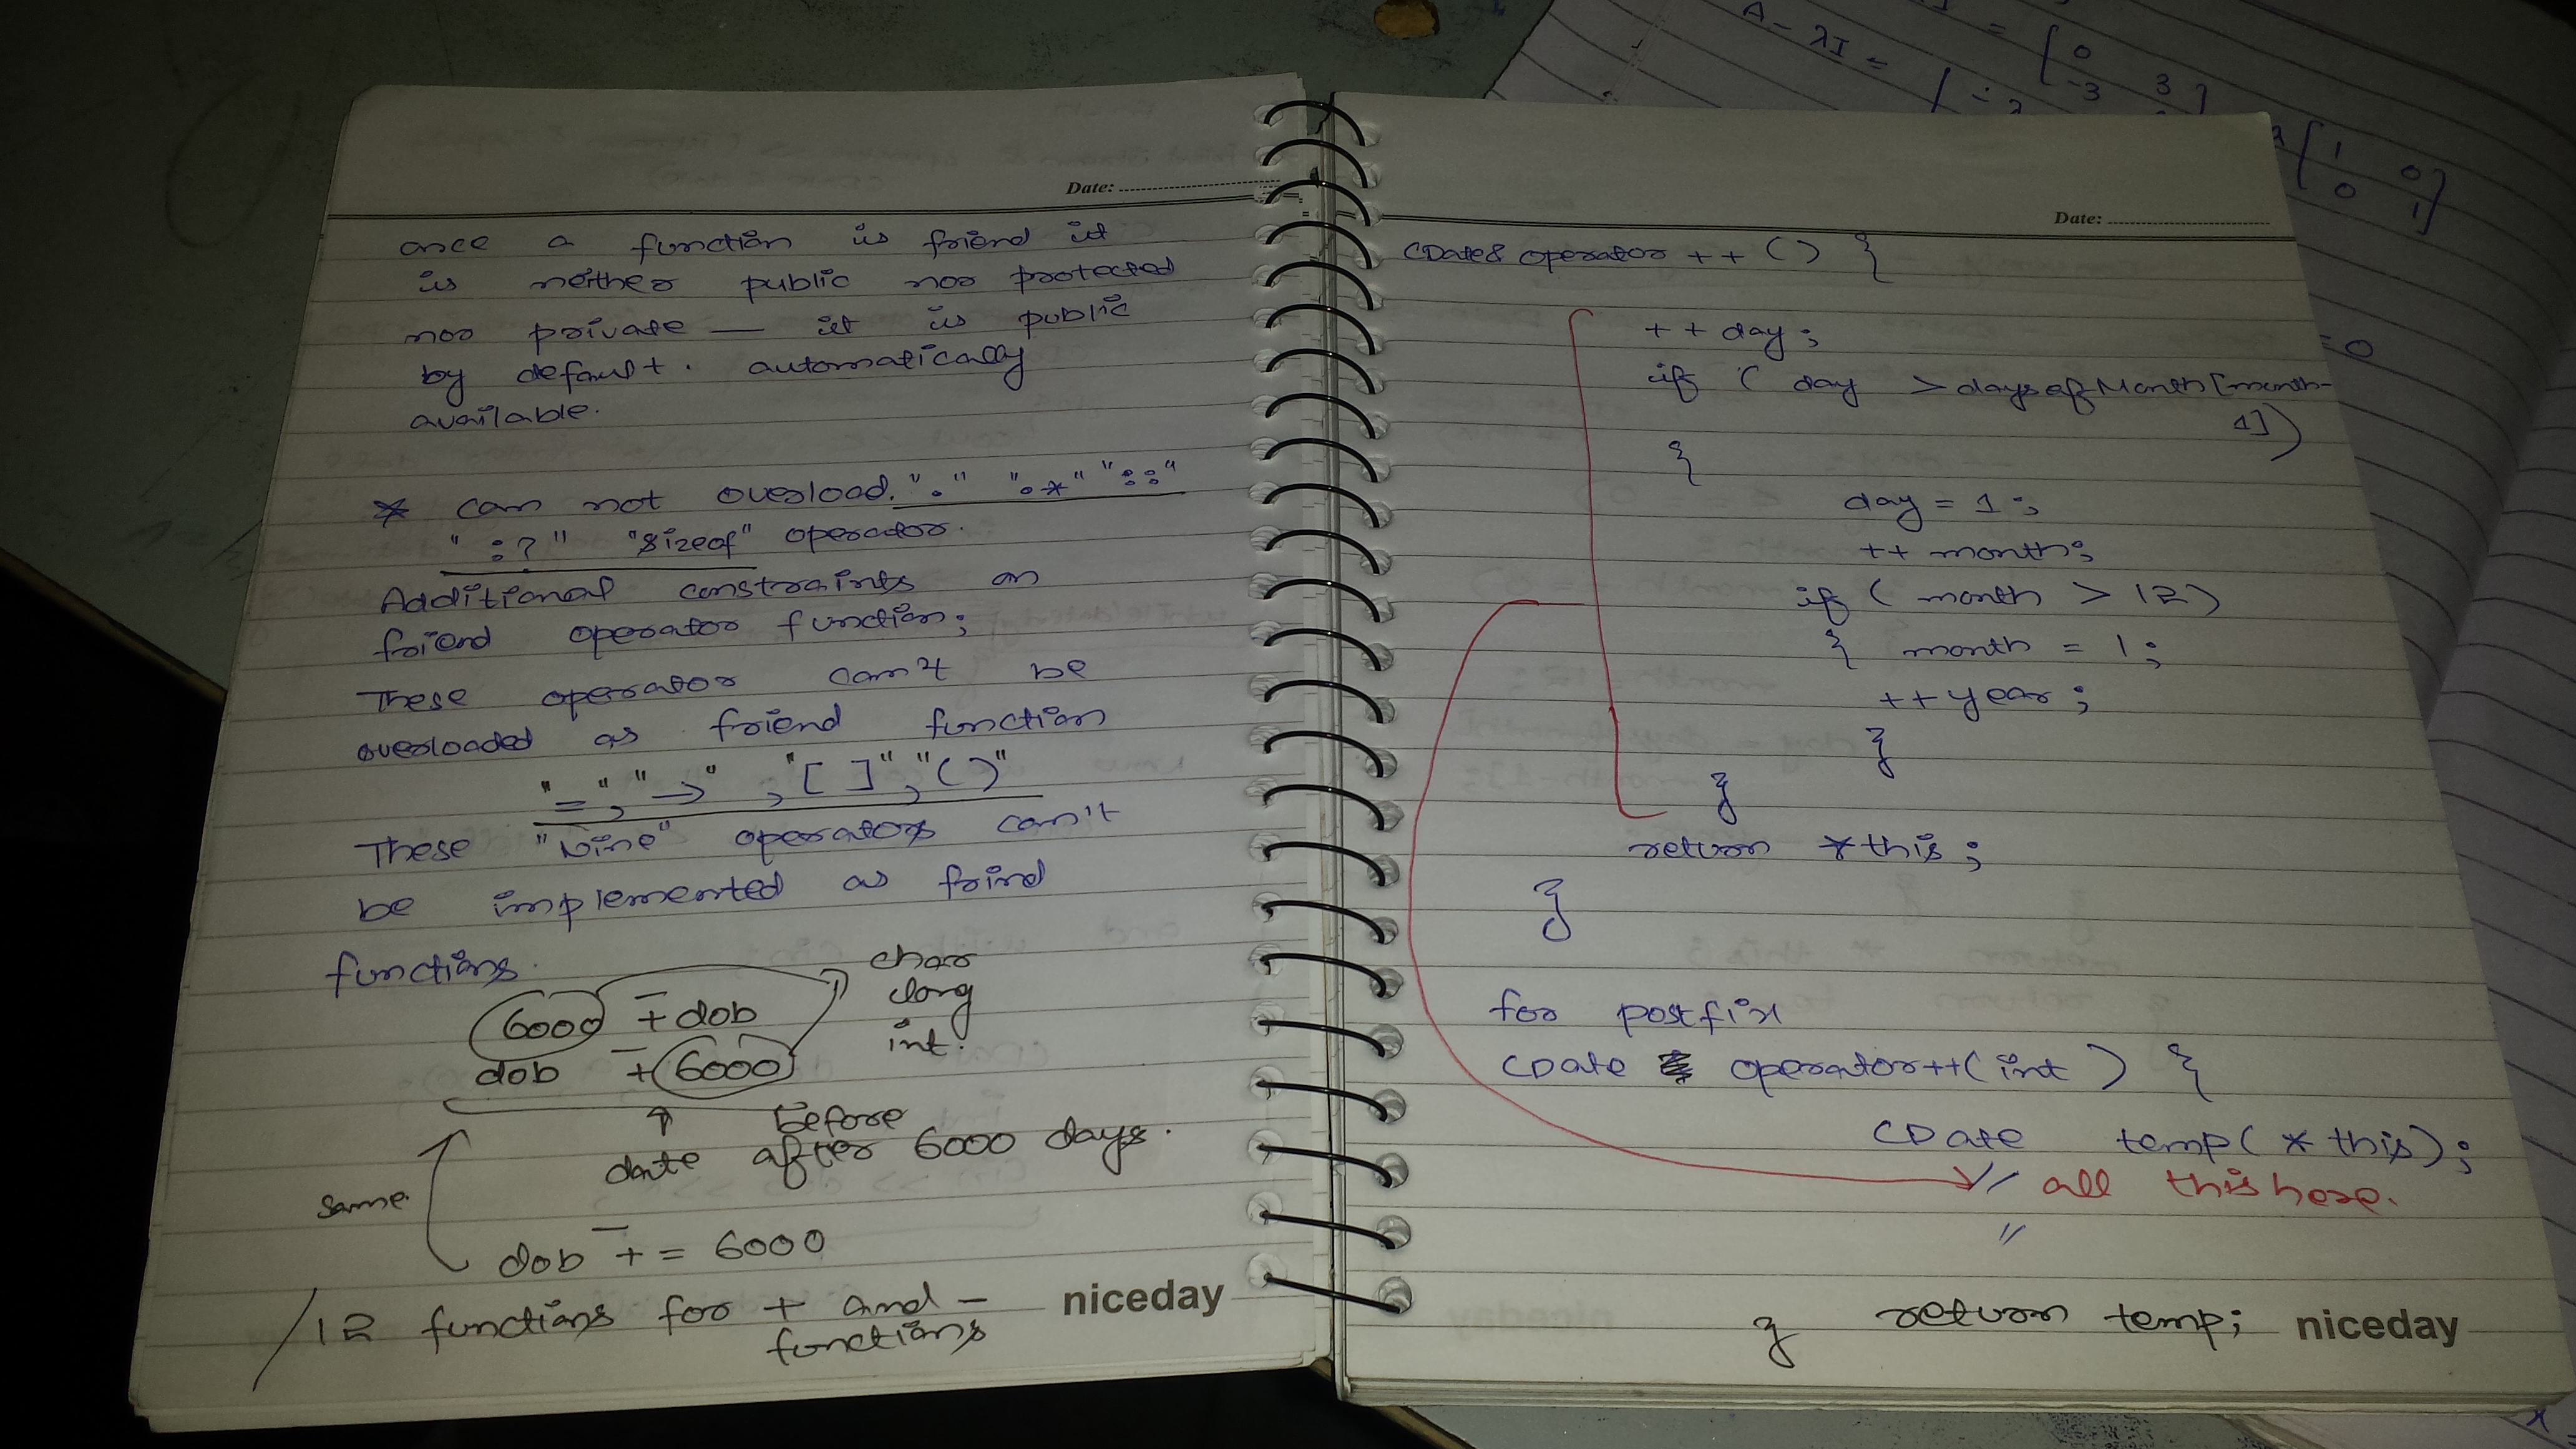 Date:
once a function is friend it
is neither public nor protected
nor private — it is public
by default. automatically
available.
* can not overload. "." ".*" "::"
" :?" "sizeof" operator.
Additional constraints on
friend operator function;
These operator can't be
overloaded as friend function
"=", "->" , "[ ]", "( )"
These "Nine" operators can't
be implemented as frind
functions.
6000 ∓ dob
dob ∓ 6000
char
long
int.
before
date after 6000 days.
same
dob ∓ = 6000
12 functions for + and -
functions
niceday
Date:
CDate& operator ++ () {
++ day;
if ( day > daysofMonth[month-
1])
{
day = 1;
++ month;
if ( month > 12)
{ month = 1;
++ year;
}
}
return *this;
}
for postfix
CDate operator++(int ) {
CDate temp( * this);
// all this here.
"
return temp;
}
niceday
A - λI =
0
-3 3
1 0
0 1
=0